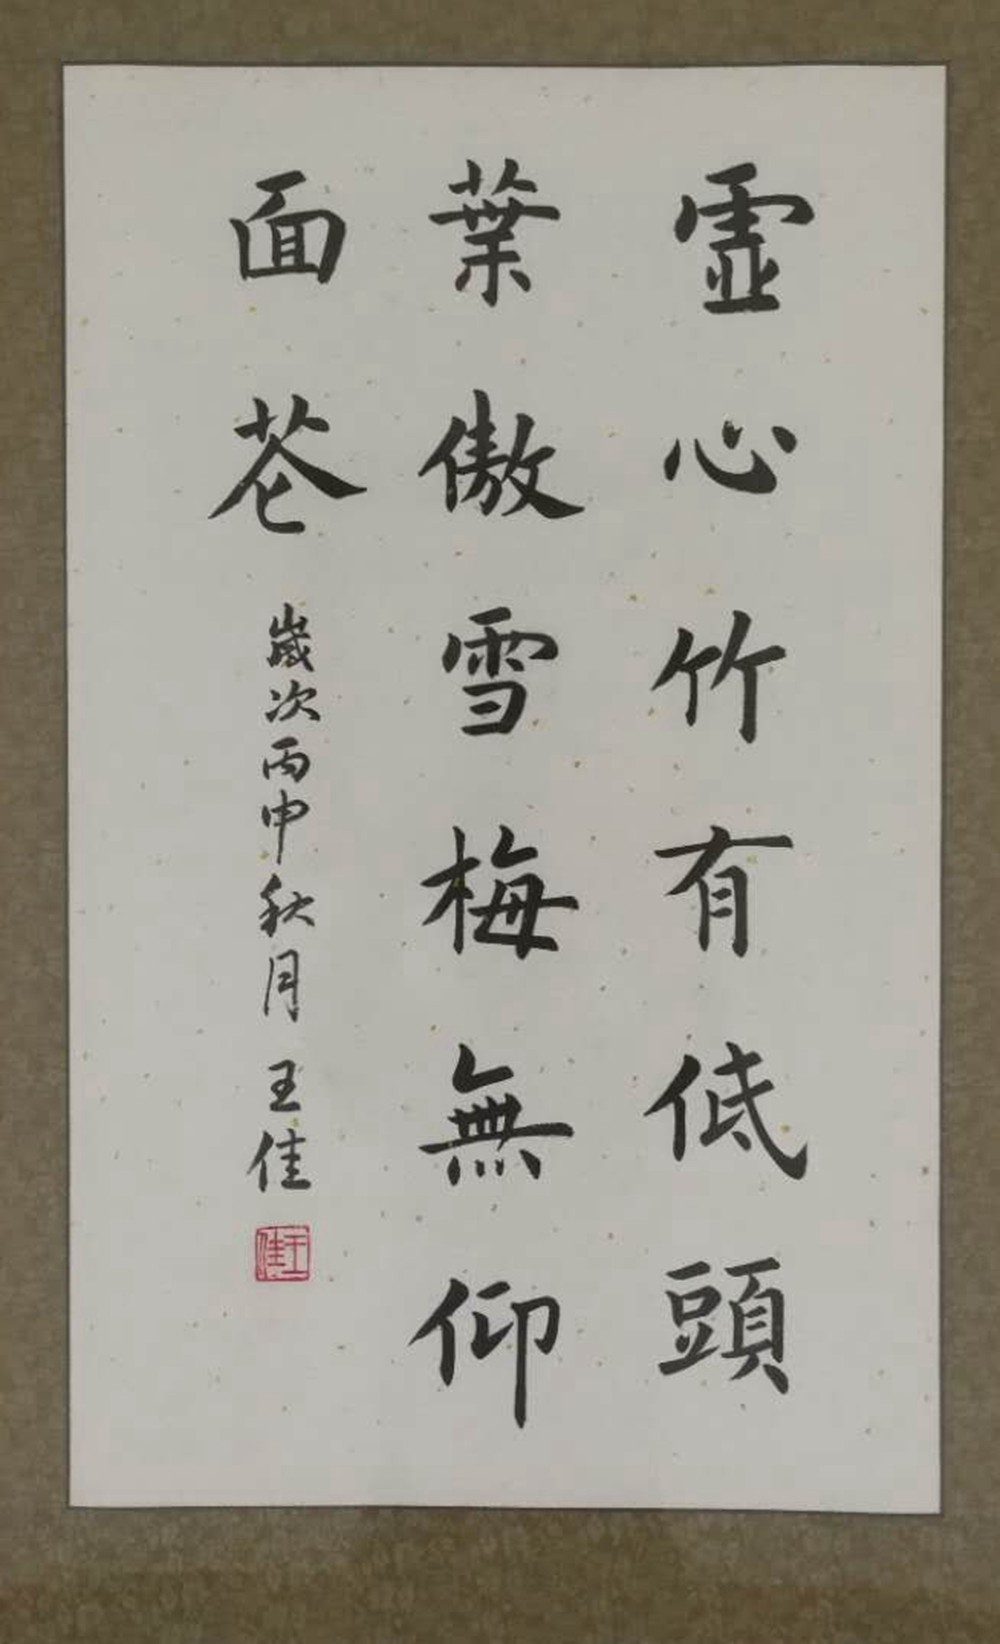 虛心竹有低頭
葉傲雪梅無仰
面花
歲次丙申秋月 王佳
王佳